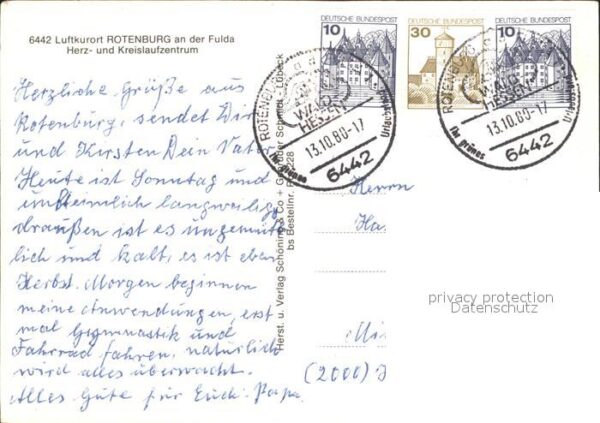 6442 Luftkurort ROTENBURG an der Fulda
Herz- und Kreislaufzentrum
Herzliche Grüße aus
Rotenburg, sendet Dir
und Kirsten Dein Vater
Heute ist Sonntag und
unheimlich langweilig
draußen ist es ungemüt-
lich und kalt, es ist eben
Herbst. Morgen beginnen
meine Anwendungen, erst
mal Gymnastik und
Fahrrad fahren, natürlich
wird alles überwacht.
Alles Gute für Euch. Papa.
Herst. u. Verlag Schöning & Co + Gebrüder Schmidt, Lübeck
bs Bestellnr.
10 DEUTSCHE BUNDESPOST
30 DEUTSCHE BUNDESPOST
10 DEUTSCHE BUNDESPOST
ROTENBURG
WALD
HESSEN
13.10.80-17
6442
Im grünes
ROTENBURG
WALD
HESSEN
13.10.80-17
6442
Im grünes
Herrn
Ha
(2000)
privacy protection
Datenschutz